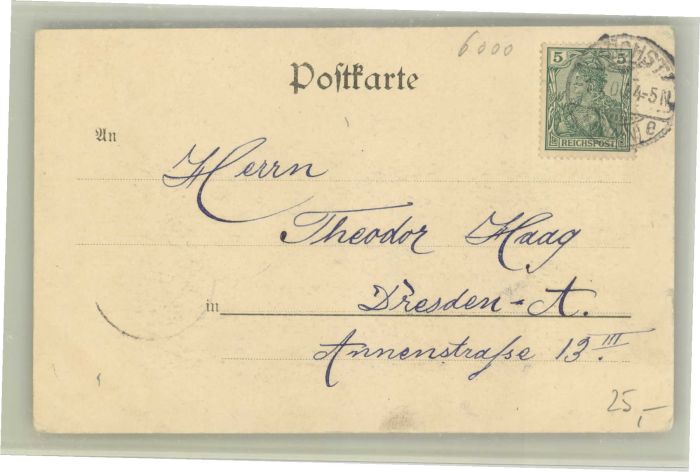 6000
Postkarte
5 5
REICHSPOST
4-5N
e
An
Herrn
Theodor Haag
in Dresden-A.
Annenstraße 13 III
25,-